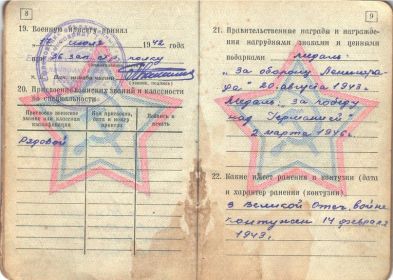 8
19. Военную присягу принял
июля 1942 года
При 36 зап. полку
20. Присвоение воинских званий и классности
по специальности:
Присвоено воинское звание или классная квалификация
Кем присвоено, дата и номер приказа
Подпись и печать
Рядовой
9
21. Правительственные награды и награждения нагрудными знаками и ценными
подарками Медаль:
"За оборону Ленинграда" 20. августа 1943 г.
Медаль „За победу
над Германией"
2 марта 1946 г.
22. Какие имеет ранения и контузии (дата
и характер ранения (контузии)
В Великой Отеч. войне
контужен 14 февраля
1943 г.